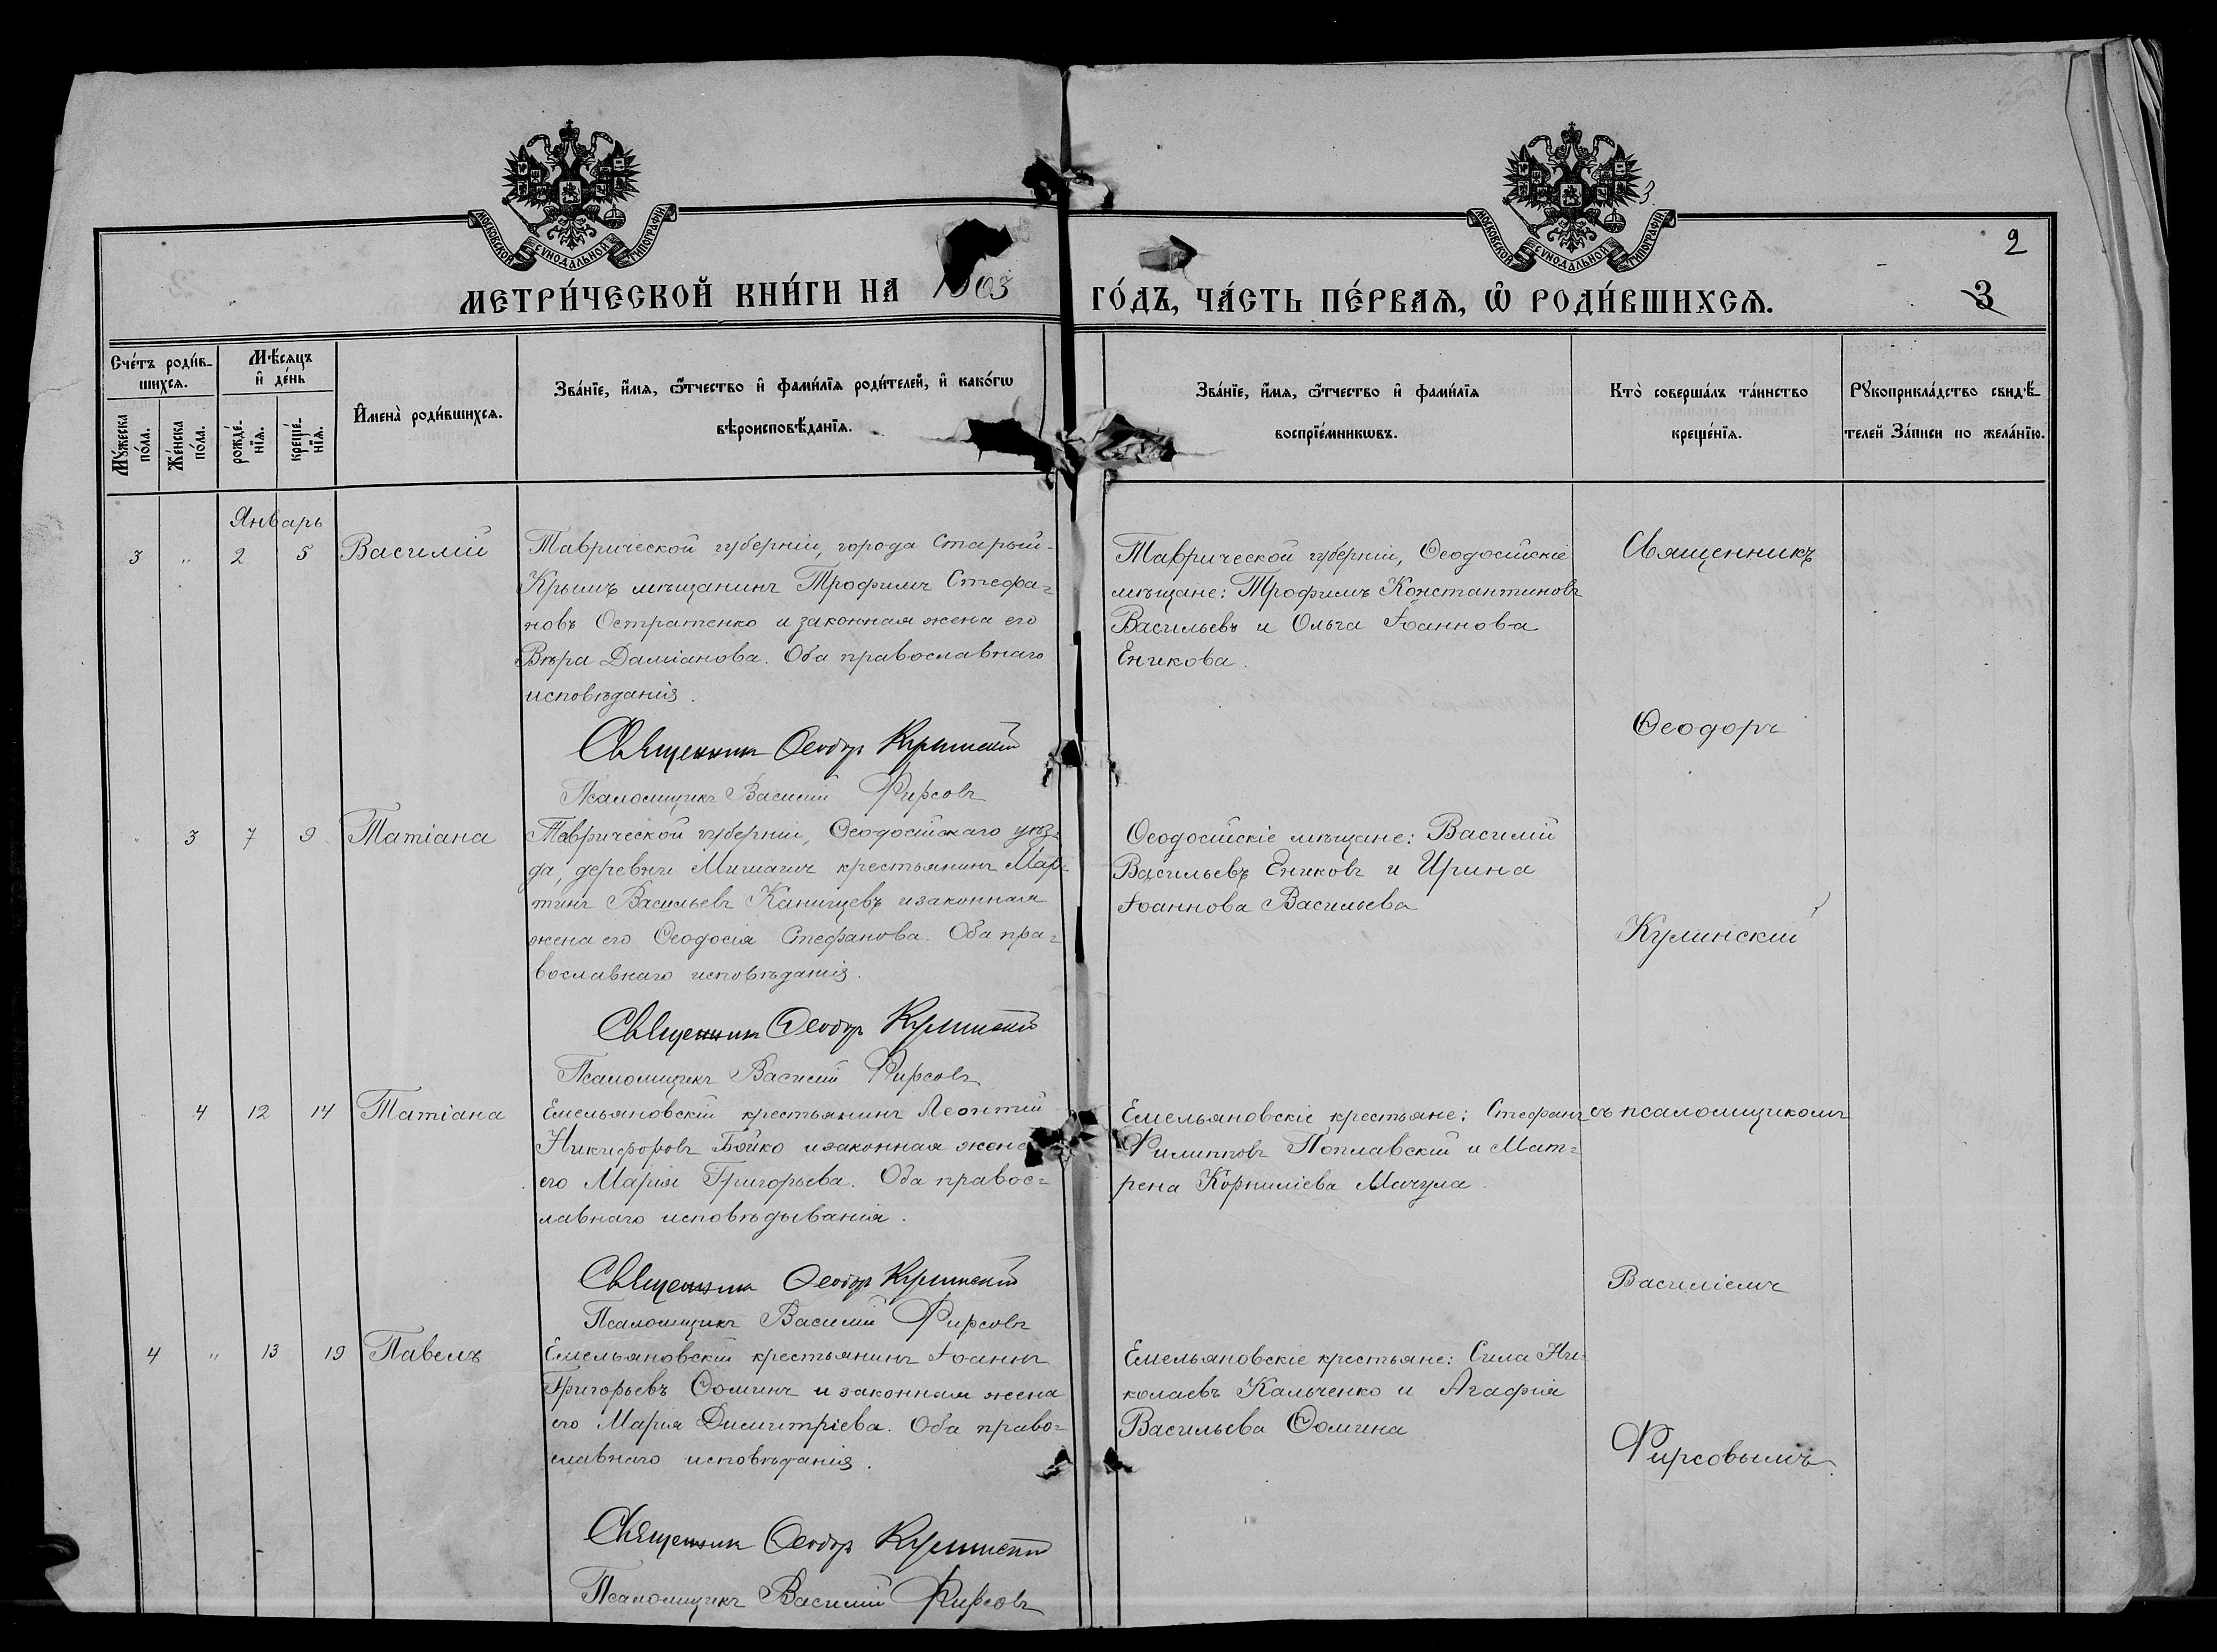 МОСКОВСКОЙ СѴНОДАЛЬНОЙ ТИПОГРАФІИ
МОСКОВСКОЙ СѴНОДАЛЬНОЙ ТИПОГРАФІИ
3.
2
МЕТРИ́ЧЕСКОЙ КНИ́ГИ НА 1903 ГО́ДЪ, ЧА́СТЬ ПЕ́РВАѦ, Ѡ РОДИ́ВШИХСѦ.
3
Сче́тъ роди́в-
шихсѧ.
Мѣ́сѧцъ
и҆ де́нь
Му́жеска по́ла.
Же́нска по́ла.
рожде́-нїѧ.
креще́-нїѧ.
И҆мена̀ роди́вшихсѧ.
Зва́нїе, и҆́мѧ, ѻ҆́тчество и҆ фами́лїѧ роди́телей, и҆ како́гѡ
вѣроисповѣ́данїѧ.
Зва́нїе, и҆́мѧ, ѻ҆́тчество и҆ фами́лїѧ
воспрїе́мникѡвъ.
Кто̀ соверша́лъ та́инство
креще́нїѧ.
Рꙋкоприкла́дство свидѣ́-
телей за́писи по жела́нїю.
Январь
3 " 2 5 Василій
Таврической губерніи, города Старый-
Крымъ мѣщанинъ Трофимъ Стефа=
новъ Остратенко и законная жена его
Вѣра Даміанова. Оба православнаго
исповѣданія.
Священникъ Ѳеодоръ Кулинскій
Псаломщикъ Василій Фирсовъ
Таврической губерніи, Ѳеодосійскіе
мѣщане: Трофимъ Константиновъ
Васильевъ и Ольга Іоаннова
Еникова.
Священникъ
Ѳеодоръ
" 3 7 9 Татіана
Таврической губерніи, Ѳеодосійскаго уѣз-
да, деревни Мишагич крестьянинъ Мар-
тинъ Васильевъ Канищевъ и законная
жена его Ѳеодосія Стефанова. Оба пра=
вославнаго исповѣданія.
Священникъ Ѳеодоръ Кулинскій
Псаломщикъ Василій Фирсовъ
Ѳеодосійскіе мѣщане: Василій
Васильевъ Ениковъ и Ирина
Іоаннова Васильева
Кулинскій
" 4 12 14 Татіана
Емельяновскій крестьянинъ Леонтій
Никифоровъ Бойко и законная жена
его Марія Григорьева. Оба правос=
лавнаго исповѣдыванія.
Священникъ Ѳеодоръ Кулинскій
Псаломщикъ Василій Фирсовъ
Емельяновскіе крестьяне: Стефанъ
Филипповъ Поплавскій и Мат=
рена Корниліева Мачула.
съ псаломщикомъ
Василіемъ
4 " 13 19 Павелъ
Емельяновскій крестьянинъ Іоаннъ
Григорьевъ Ѳоминъ и законная жена
его Марія Димитріева. Оба право=
славнаго исповѣданія.
Священникъ Ѳеодоръ Кулинскій
Псаломщикъ Василій Фирсовъ
Емельяновскіе крестьяне: Сила Ни-
колаевъ Кальченко и Агафія
Васильева Ѳомина
Фирсовымъ.